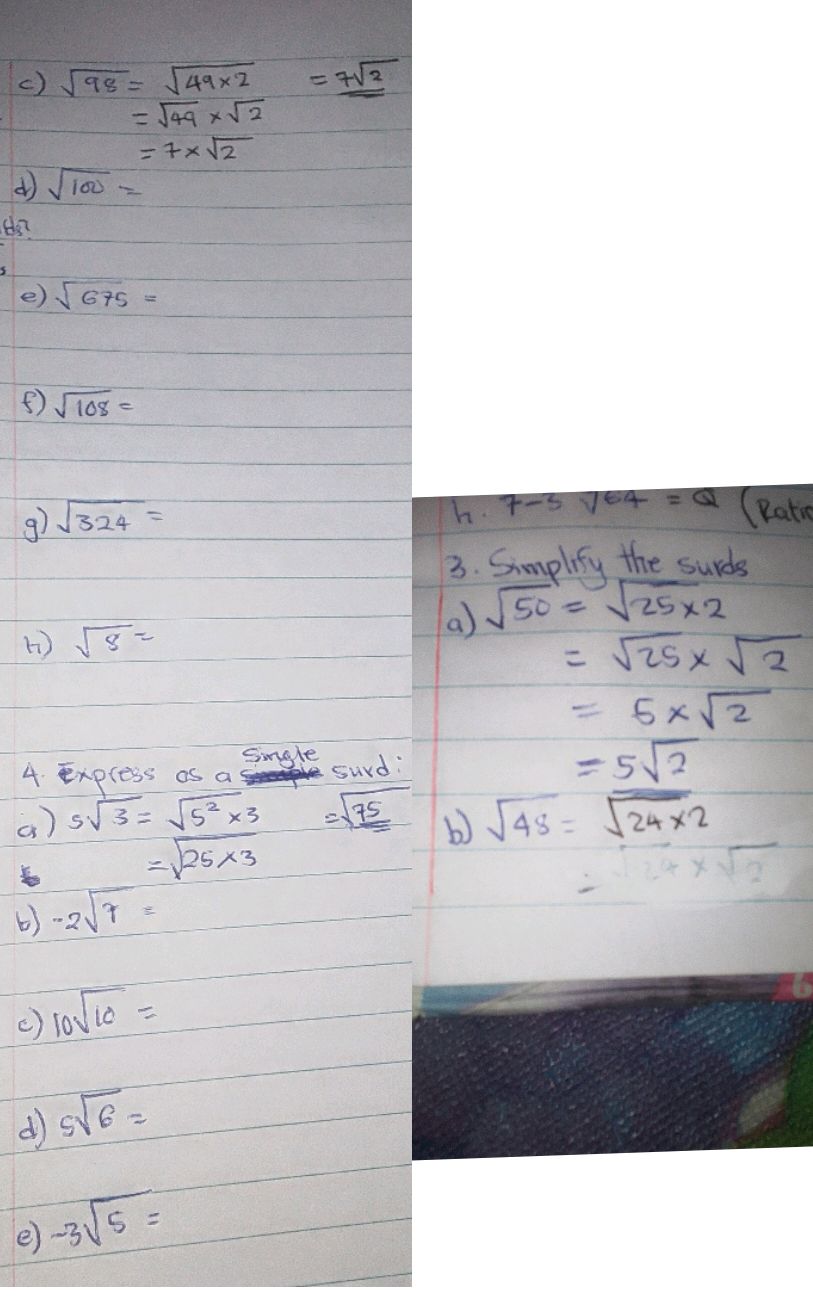 c) √98 = √49×2 = 7√2
= √49 × √2
= 7×√2
d) √100 =
e) √675 =
f) √108 =
g) √324 =
h) √8 =
4. Express as a single surd:
a) 5√3 = √5²×3 = √75
= √25×3
b) -2√7 =
c) 10√10 =
d) 5√6 =
e) -3√5 =
h. 7-3 √64 = Q (Ratio
3. Simplify the surds
a) √50 = √25×2
= √25 × √2
= 5×√2
= 5√2
b) √48 = √24×2
= √24 × √2